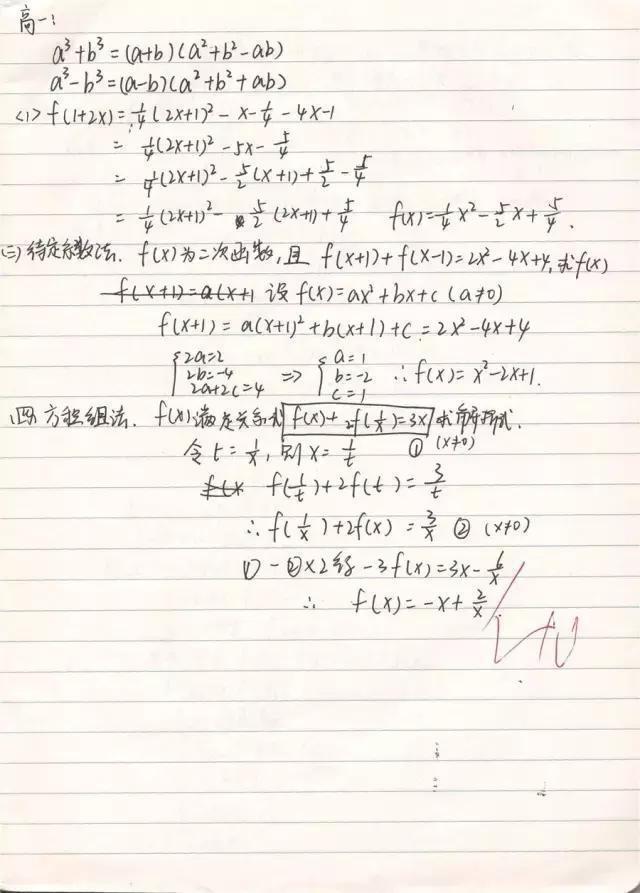 高一:
a³+b³=(a+b)(a²+b²-ab)
a³-b³=(a-b)(a²+b²+ab)
<1> f(1+2x)=1/4(2x+1)²-x-1/4-4x-1
= 1/4(2x+1)²-5x-5/4
= 1/4(2x+1)²-5/2(x+1)+5/2-5/4
= 1/4(2x+1)²-5/2(2x+1)+5/4 f(x)=1/4x²-5/2x+5/4.
(三)待定系数法. f(x)为二次函数,且 f(x+1)+f(x-1)=2x²-4x+4,求f(x)
f(x+1)=a(x+1 设f(x)=ax²+bx+c (a≠0)
f(x+1)=a(x+1)²+b(x+1)+c=2x²-4x+4
{2a=2 2b=-4 2a+2c=4 => {a=1 b=-2 c=1 ∴f(x)=x²-2x+1.
(四)方程组法. f(x)满足关系式f(x)+2f(1/x)=3x求解析式.
① (x≠0)
令t=1/x,则x=1/t
f(x f(1/t)+2f(t)=3/t
∴f(1/x)+2f(x)=3/x ② (x≠0)
①-②×2得-3f(x)=3x-6/x
∴ f(x)=-x+2/x